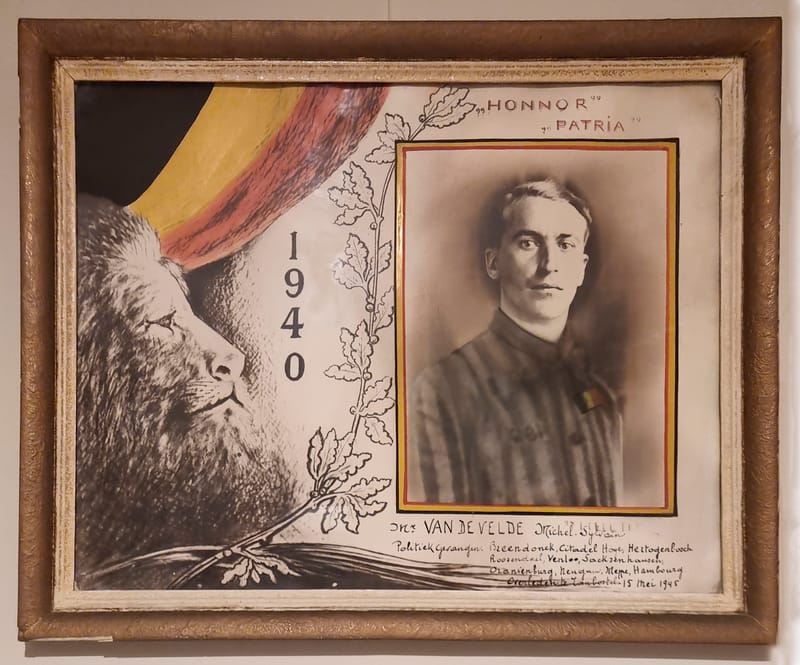 1940
„HONNOR”
„PATRIA”
VAN DE VELDE Michel. Sylvain
Politiek Gevangen. Breendonck, Citadel Hoye, Hertogenbosch
Roosendael, Venloo, Sachsenhausen,
Oranienburg, Neugam, Meppe, Hambourg
Overleden te 15 Mei 1945